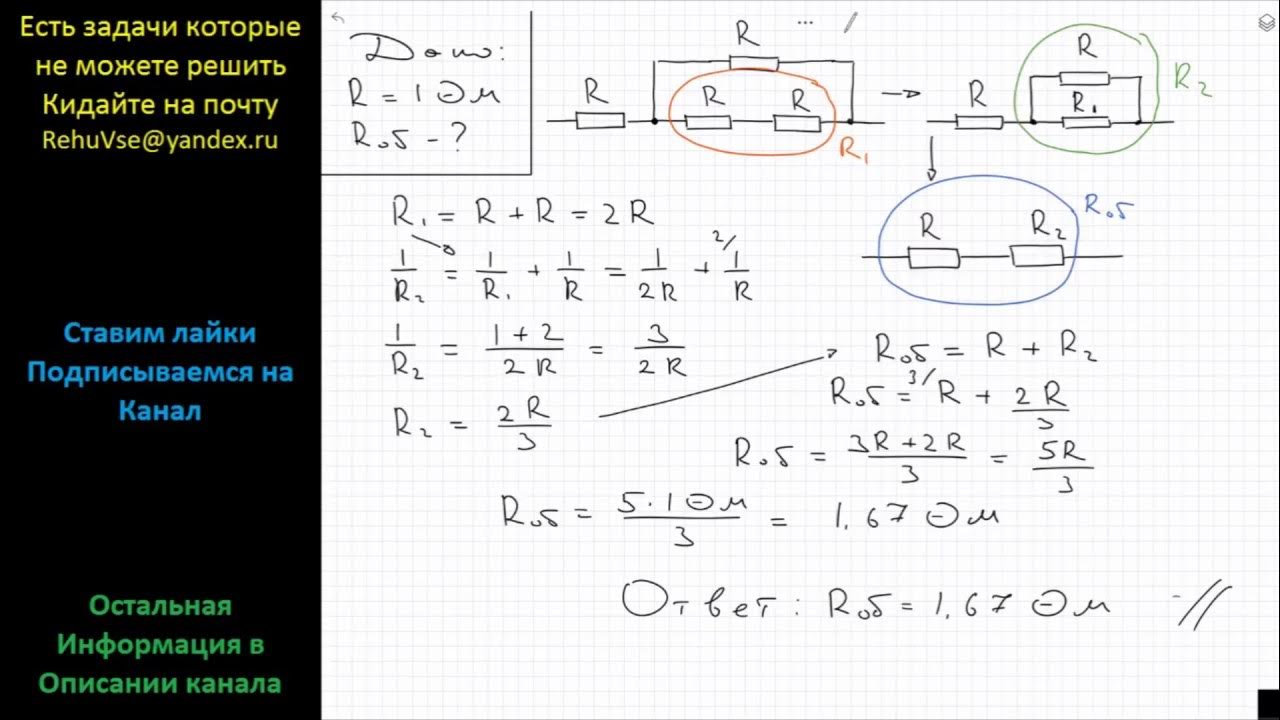 Есть задачи которые
не можете решить
Кидайте на почту
RehuVse@yandex.ru
Ставим лайки
Подписываемся на
Канал
Остальная
Информация в
Описании канала
Дано:
R = 1 Ом
Rоб - ?
R
R
R R
R₁
R
R
R₁
R₂
R R₂
Rоб
R₁ = R + R = 2R
1/R₂ = 1/R₁ + 1/R = 1/2R + ²/ 1/R
1/R₂ = (1 + 2)/2R = 3/2R
R₂ = 2R/3
Rоб = R + R₂
Rоб = ³/ R + 2R/3
Rоб = (3R + 2R)/3 = 5R/3
Rоб = (5·1 Ом)/3 = 1,67 Ом
Ответ: Rоб = 1,67 Ом